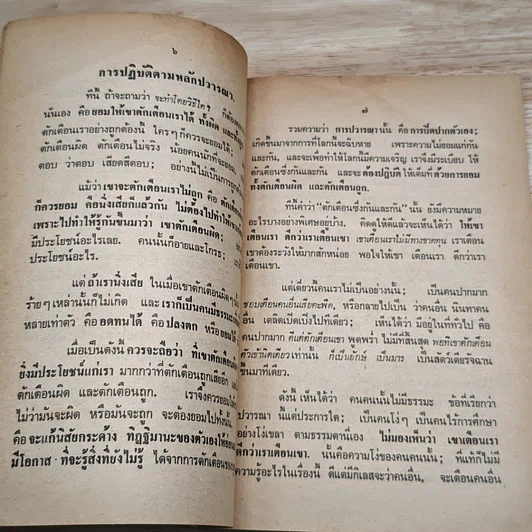 ๖
การปฏิบัติตามหลักปวารณา.
ทีนี้ ถ้าจะถามว่า จะทำโดยวิธีใด? ก็ต้อง
นั่นเอง คือยอมให้เขาตักเตือนเราได้ ทั้งผิด และ
ตักเตือนเราอย่างถูกต้องนี้ ใครๆ ก็ควรจะยอมได้;
ตักเตือนผิด ตักเตือนไม่จริง น้อยคนนักที่จะ
ตอบ ว่าตอบ เสียดสีตอบ; อย่างนี้ไม่เป็นการ
แม้ว่า เขาจะตักเตือนเราไม่ถูก คือ ตักเตือน
ก็ควรยอม คือนิ่งเสียก็แล้วกัน ไม่ต้องไปทำให้
เพราะไปทำให้รู้กันขึ้นมาว่า เขาตักเตือนผิด;
มีประโยชน์อะไรเลย. คนนั้นก็อายและโกรธ;
ประโยชน์อะไร.
แต่ ถ้าเรานิ่งเสีย ในเมื่อเขาตักเตือนผิดๆ
ร้ายๆ เหล่านั้นก็ไม่เกิด และ เราก็เป็นคนมีธรรมะ
หลายเท่าตัว คือ อดทนได้ คือ ปลงตก หรือ ยอม
เมื่อเป็นดังนี้ ควรจะถือว่า ที่เขาตักเตือน
ยิ่งมีประโยชน์แก่เรา มากกว่าที่ตักเตือนถูกเสียอีก
ตักเตือนผิด และตักเตือนถูก. เราจึงควร
ไม่ว่ามันจะผิด หรือมันจะถูก จะต้องยอมไปทั้งนั้น.
คือ จะแก้นิสัยกระด้าง ทิฏฐิมานะของตัวเองให้
มีโอกาส ที่จะรู้สิ่งที่ยังไม่รู้ ได้จากการตักเตือนของ
๗
รวมความว่า การปวารณานั้น คือ การปิดปากตัวเอง;
เกิดขึ้นมาจากการที่โลกนี้จะฉิบหาย เพราะความไม่ยอมแก่กัน
และกัน, และจะเพื่อทำให้โลกนี้มีความเจริญ เราจึงมีระเบียบ ให้
ตักเตือนซึ่งกันและกัน และจะ ต้องปฏิบัติ ให้เต็มที่ ด้วยการยอม
ทั้งตักเตือนผิด และตักเตือนถูก.
ทีนี้คำว่า "ตักเตือนซึ่งกันและกัน" นั้น ยังมีความหมาย
อะไรบางอย่างพิเศษอย่างบ้าง. คิดดูให้ดีแล้วจะเห็นได้ว่า ให้เขา
เตือนเรา ดีกว่าเราเตือนเขา เขาเตือนเราไม่มีทางขาดทุน เราเตือน
เขาต้องระวังให้มากสักหน่อย พอใจให้เขา เตือนเรา ดีกว่าเรา
เตือนเขา.
แต่เดี๋ยวนี้คนเราไม่เป็นอย่างนั้น; เป็นคนปากมาก
ชอบเตือนคนอื่นเรี่ยตะพึด, หรือกลายไปเป็น ว่าคนอื่น นินทาคน
อื่น เตลิดเปิดเปิงไปทีเดียว; เห็นได้ว่า มีอยู่ในที่ทั่วไป คือ
คนปากมาก ดีแต่ตักเตือนเขา พูดพร่ำ ไม่มีที่สิ้นสุด พอทีเขาตักเตือน
ตัวเข้านิดเดียวเท่านั้น ก็เป็นยักษ์ เป็นมาร เป็นสัตว์เดียรัจฉาน
ขึ้นมาทีเดียว.
ดังนี้ เห็นได้ว่า คนคนนั้นไม่มีธรรมะ ข้อที่เรียกว่า
ปวารณา นี้แต่ประการใด; เป็นคนโง่ๆ เป็นคนไร้การศึกษา
อย่างโง่เขลา ตามธรรมดานี่เอง ไม่มองเห็นว่า เขาเตือนเรา
ดีกว่าเราเตือนเขา. นั่นคือความโง่ของคนคนนั้น; ที่แท้ก็ไม่มี
ความรู้อะไรในเรื่องนี้ ดีแต่มีกิเลสจะว่าคนอื่น, จะเตือนคนอื่น